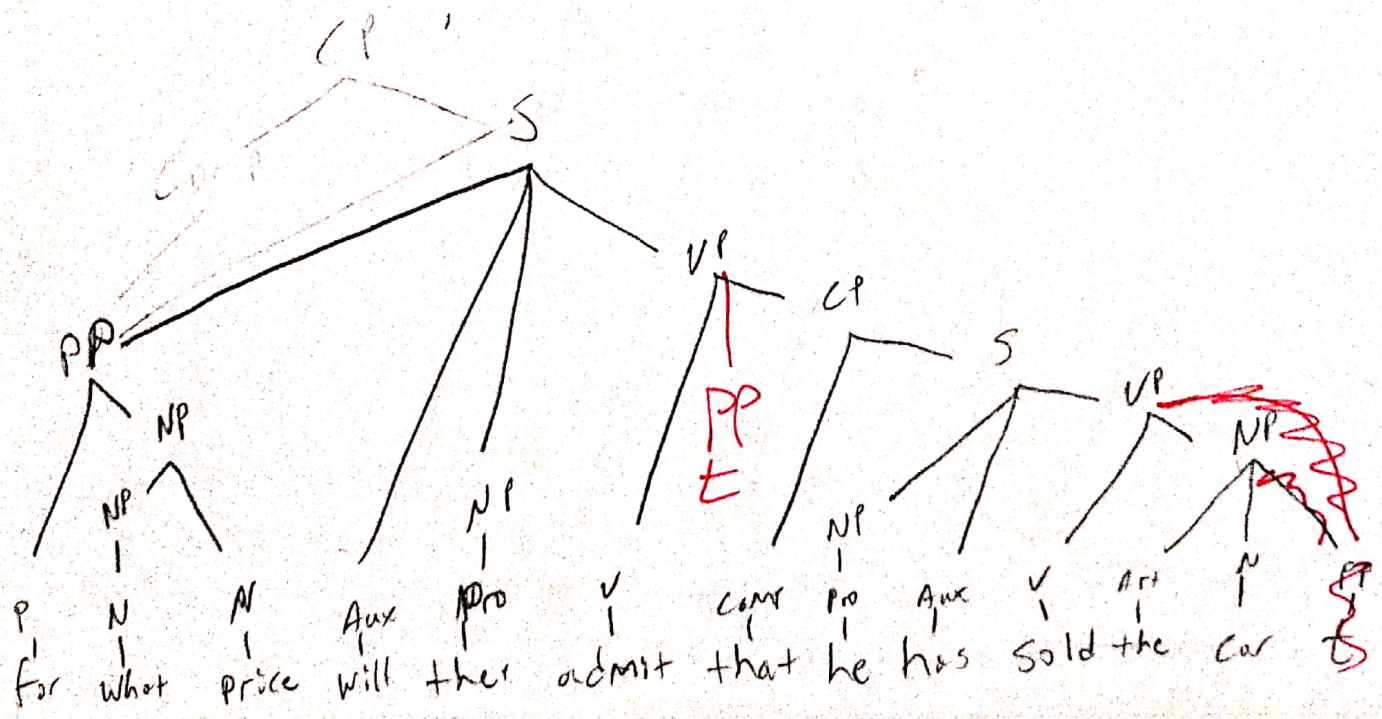 CP
S
Comp
VP
CP
PP
S
VP
PP
NP
NP
t
NP
NP
NP
P N N Aux Pro V Comp Pro Aux V Art N PP
for what price will they admit that he has sold the car t